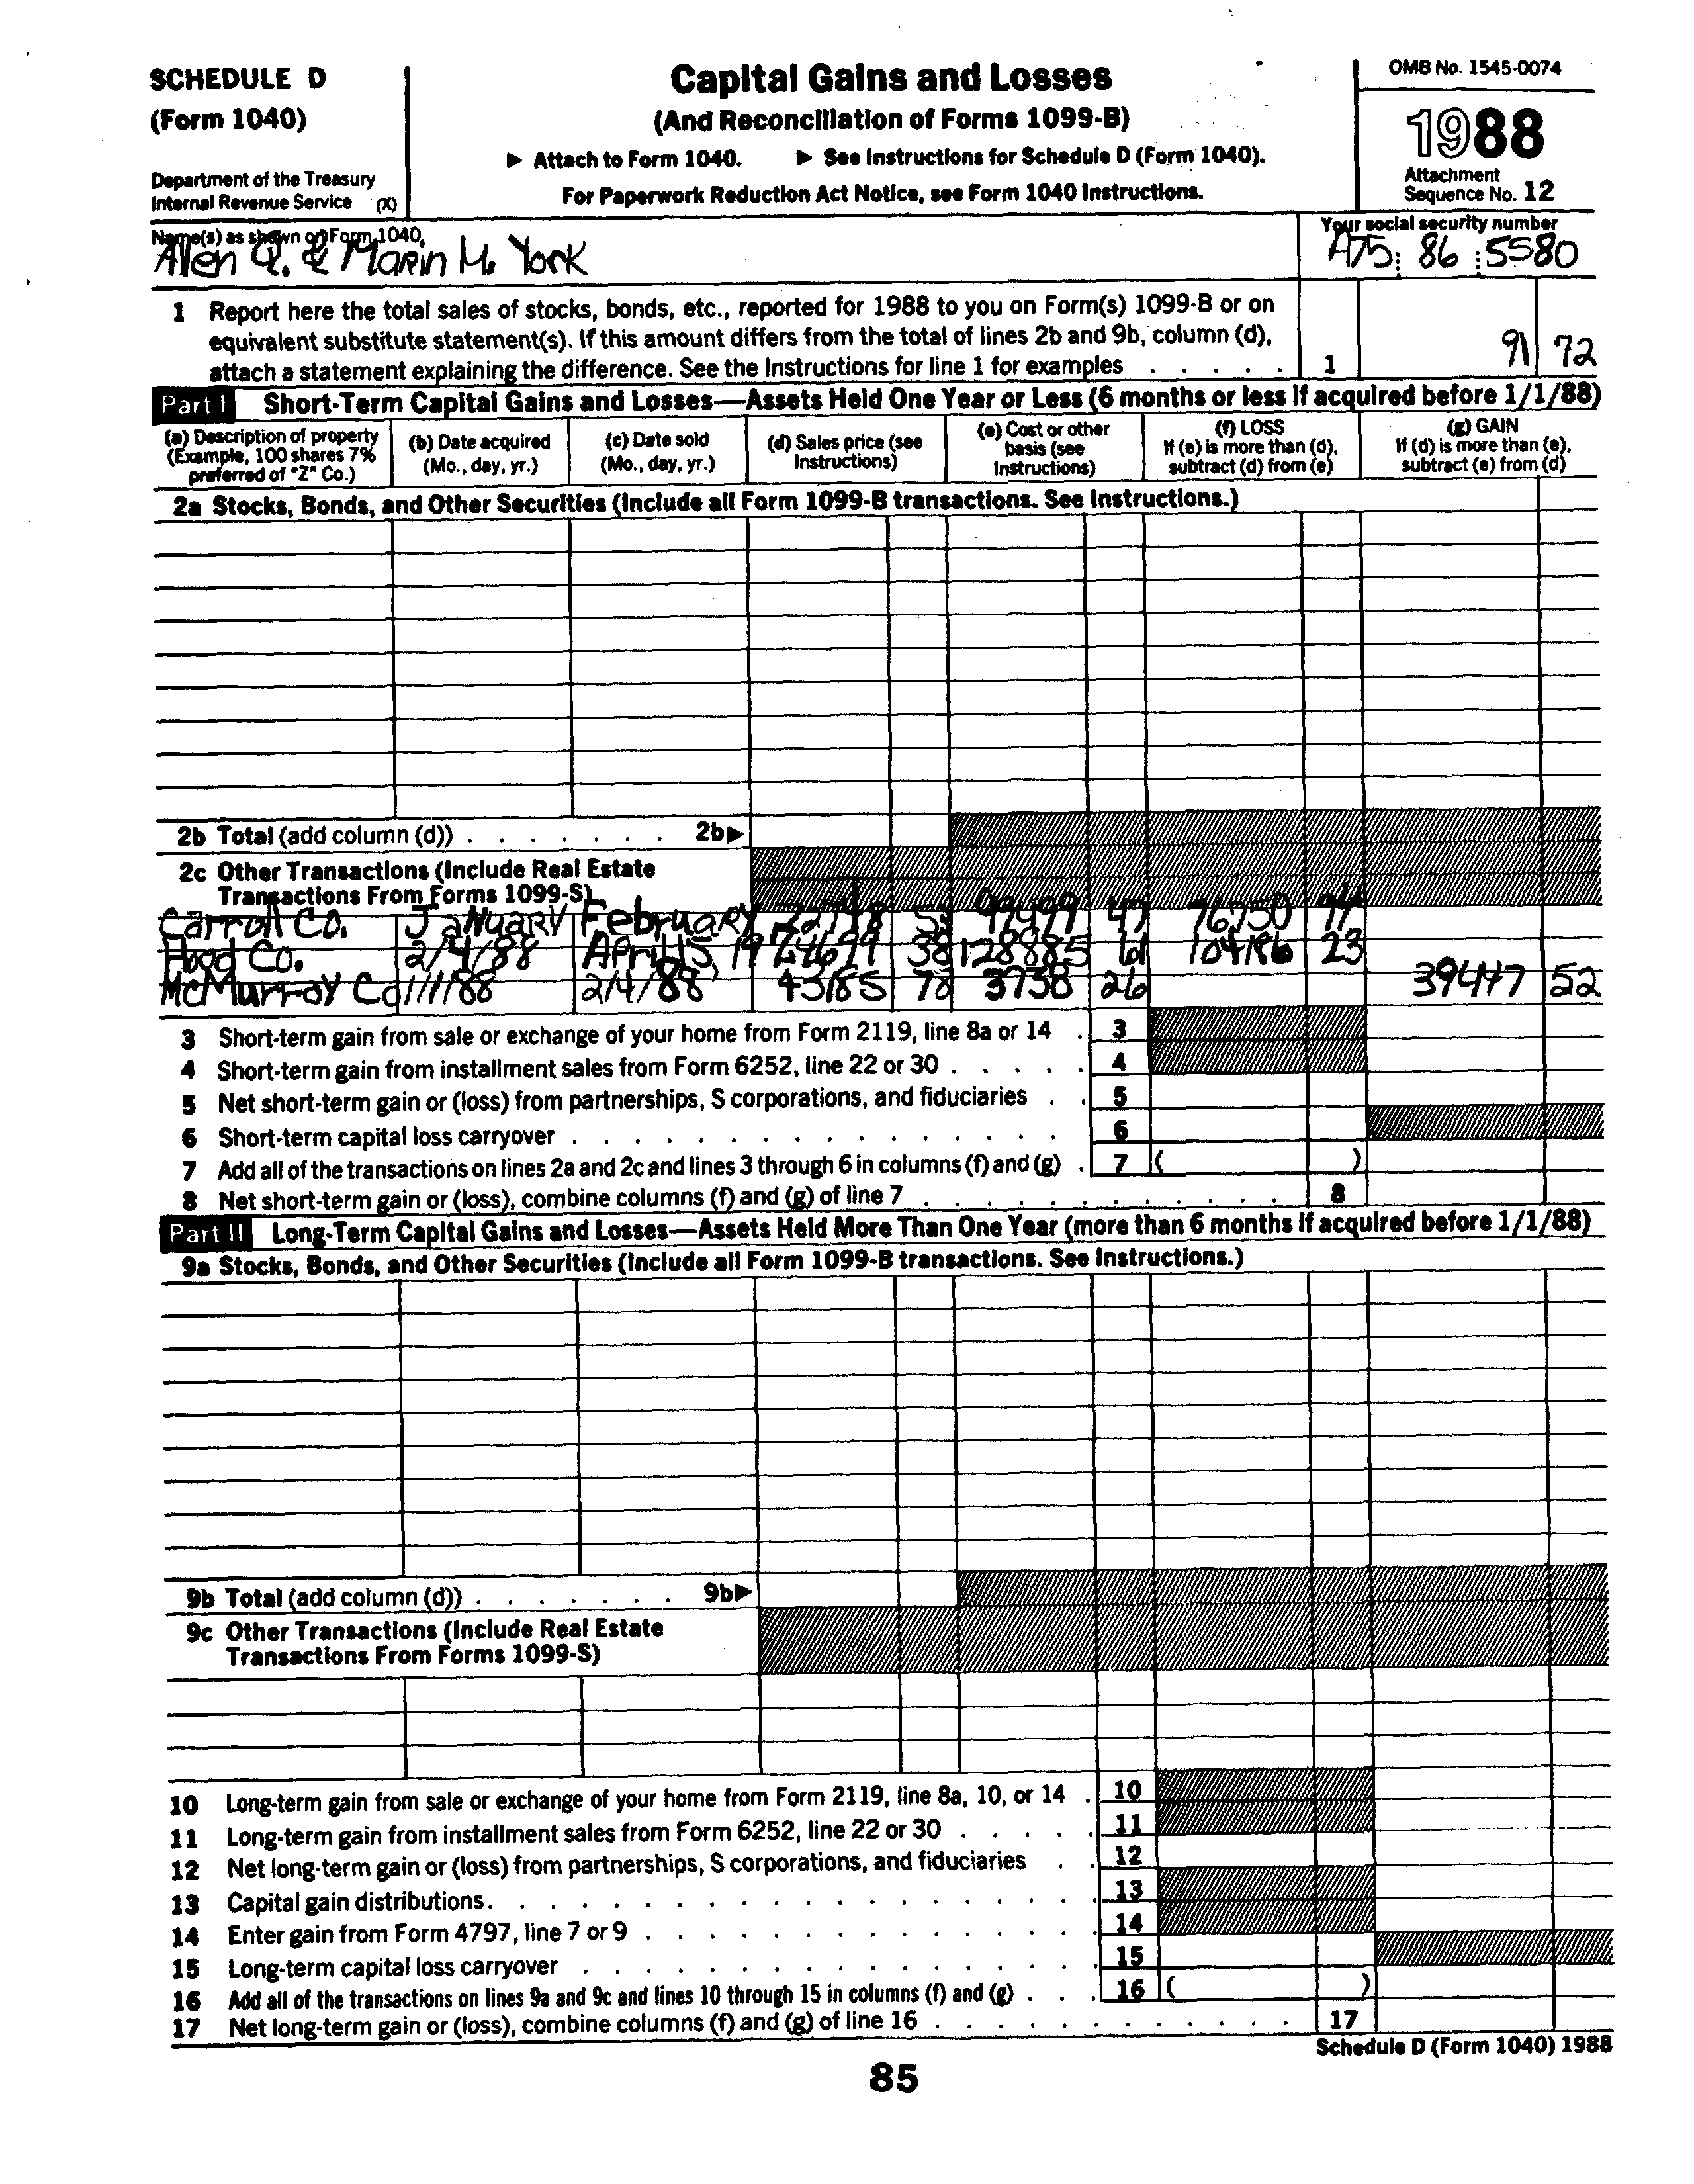 SCHEDULE D
(Form 1040)
Department of the Treasury
Internal Revenue Service (X)
Capital Gains and Losses
(And Reconciliation of Forms 1099-B)
▶ Attach to Form 1040. ▶ See Instructions for Schedule D (Form 1040).
For Paperwork Reduction Act Notice, see Form 1040 Instructions.
OMB No. 1545-0074
1988
Attachment
Sequence No. 12
Name(s) as shown on Form 1040.
Allen Q. & Marin M. York
Your social security number
A75 86 5580
1 Report here the total sales of stocks, bonds, etc., reported for 1988 to you on Form(s) 1099-B or on
equivalent substitute statement(s). If this amount differs from the total of lines 2b and 9b, column (d),
attach a statement explaining the difference. See the Instructions for line 1 for examples . . . . . 1 91 72
Part I Short-Term Capital Gains and Losses—Assets Held One Year or Less (6 months or less if acquired before 1/1/88)
(a) Description of property
(Example, 100 shares 7%
preferred of "Z" Co.)
(b) Date acquired
(Mo., day, yr.)
(c) Date sold
(Mo., day, yr.)
(d) Sales price (see
Instructions)
(e) Cost or other
basis (see
Instructions)
(f) LOSS
If (e) is more than (d),
subtract (d) from (e)
(g) GAIN
If (d) is more than (e),
subtract (e) from (d)
2a Stocks, Bonds, and Other Securities (Include all Form 1099-B transactions. See Instructions.)
2b Total (add column (d)) . . . . . . . 2b▶
2c Other Transactions (Include Real Estate
Transactions From Forms 1099-S)
Carroll Co. January February 76750
Hood Co. 2/4/88 April 15, 19 24699 38 128885 61 104186 23
McMurray Co 1/1/88 2/4/88 43185 78 3738 26 39447 52
3 Short-term gain from sale or exchange of your home from Form 2119, line 8a or 14 . 3
4 Short-term gain from installment sales from Form 6252, line 22 or 30 . . . . . 4
5 Net short-term gain or (loss) from partnerships, S corporations, and fiduciaries . . 5
6 Short-term capital loss carryover . . . . . . . . . . . . . . . . 6
7 Add all of the transactions on lines 2a and 2c and lines 3 through 6 in columns (f) and (g) . 7 ( )
8 Net short-term gain or (loss), combine columns (f) and (g) of line 7 . . . . . . . . . . . . 8
Part II Long-Term Capital Gains and Losses—Assets Held More Than One Year (more than 6 months if acquired before 1/1/88)
9a Stocks, Bonds, and Other Securities (Include all Form 1099-B transactions. See Instructions.)
9b Total (add column (d)) . . . . . . . 9b▶
9c Other Transactions (Include Real Estate
Transactions From Forms 1099-S)
10 Long-term gain from sale or exchange of your home from Form 2119, line 8a, 10, or 14 . 10
11 Long-term gain from installment sales from Form 6252, line 22 or 30 . . . . . 11
12 Net long-term gain or (loss) from partnerships, S corporations, and fiduciaries . . 12
13 Capital gain distributions. . . . . . . . . . . . . . . . . . . 13
14 Enter gain from Form 4797, line 7 or 9 . . . . . . . . . . . . . . 14
15 Long-term capital loss carryover . . . . . . . . . . . . . . . . 15
16 Add all of the transactions on lines 9a and 9c and lines 10 through 15 in columns (f) and (g) . . . 16 ( )
17 Net long-term gain or (loss), combine columns (f) and (g) of line 16 . . . . . . . . . . . . 17
Schedule D (Form 1040) 1988
85